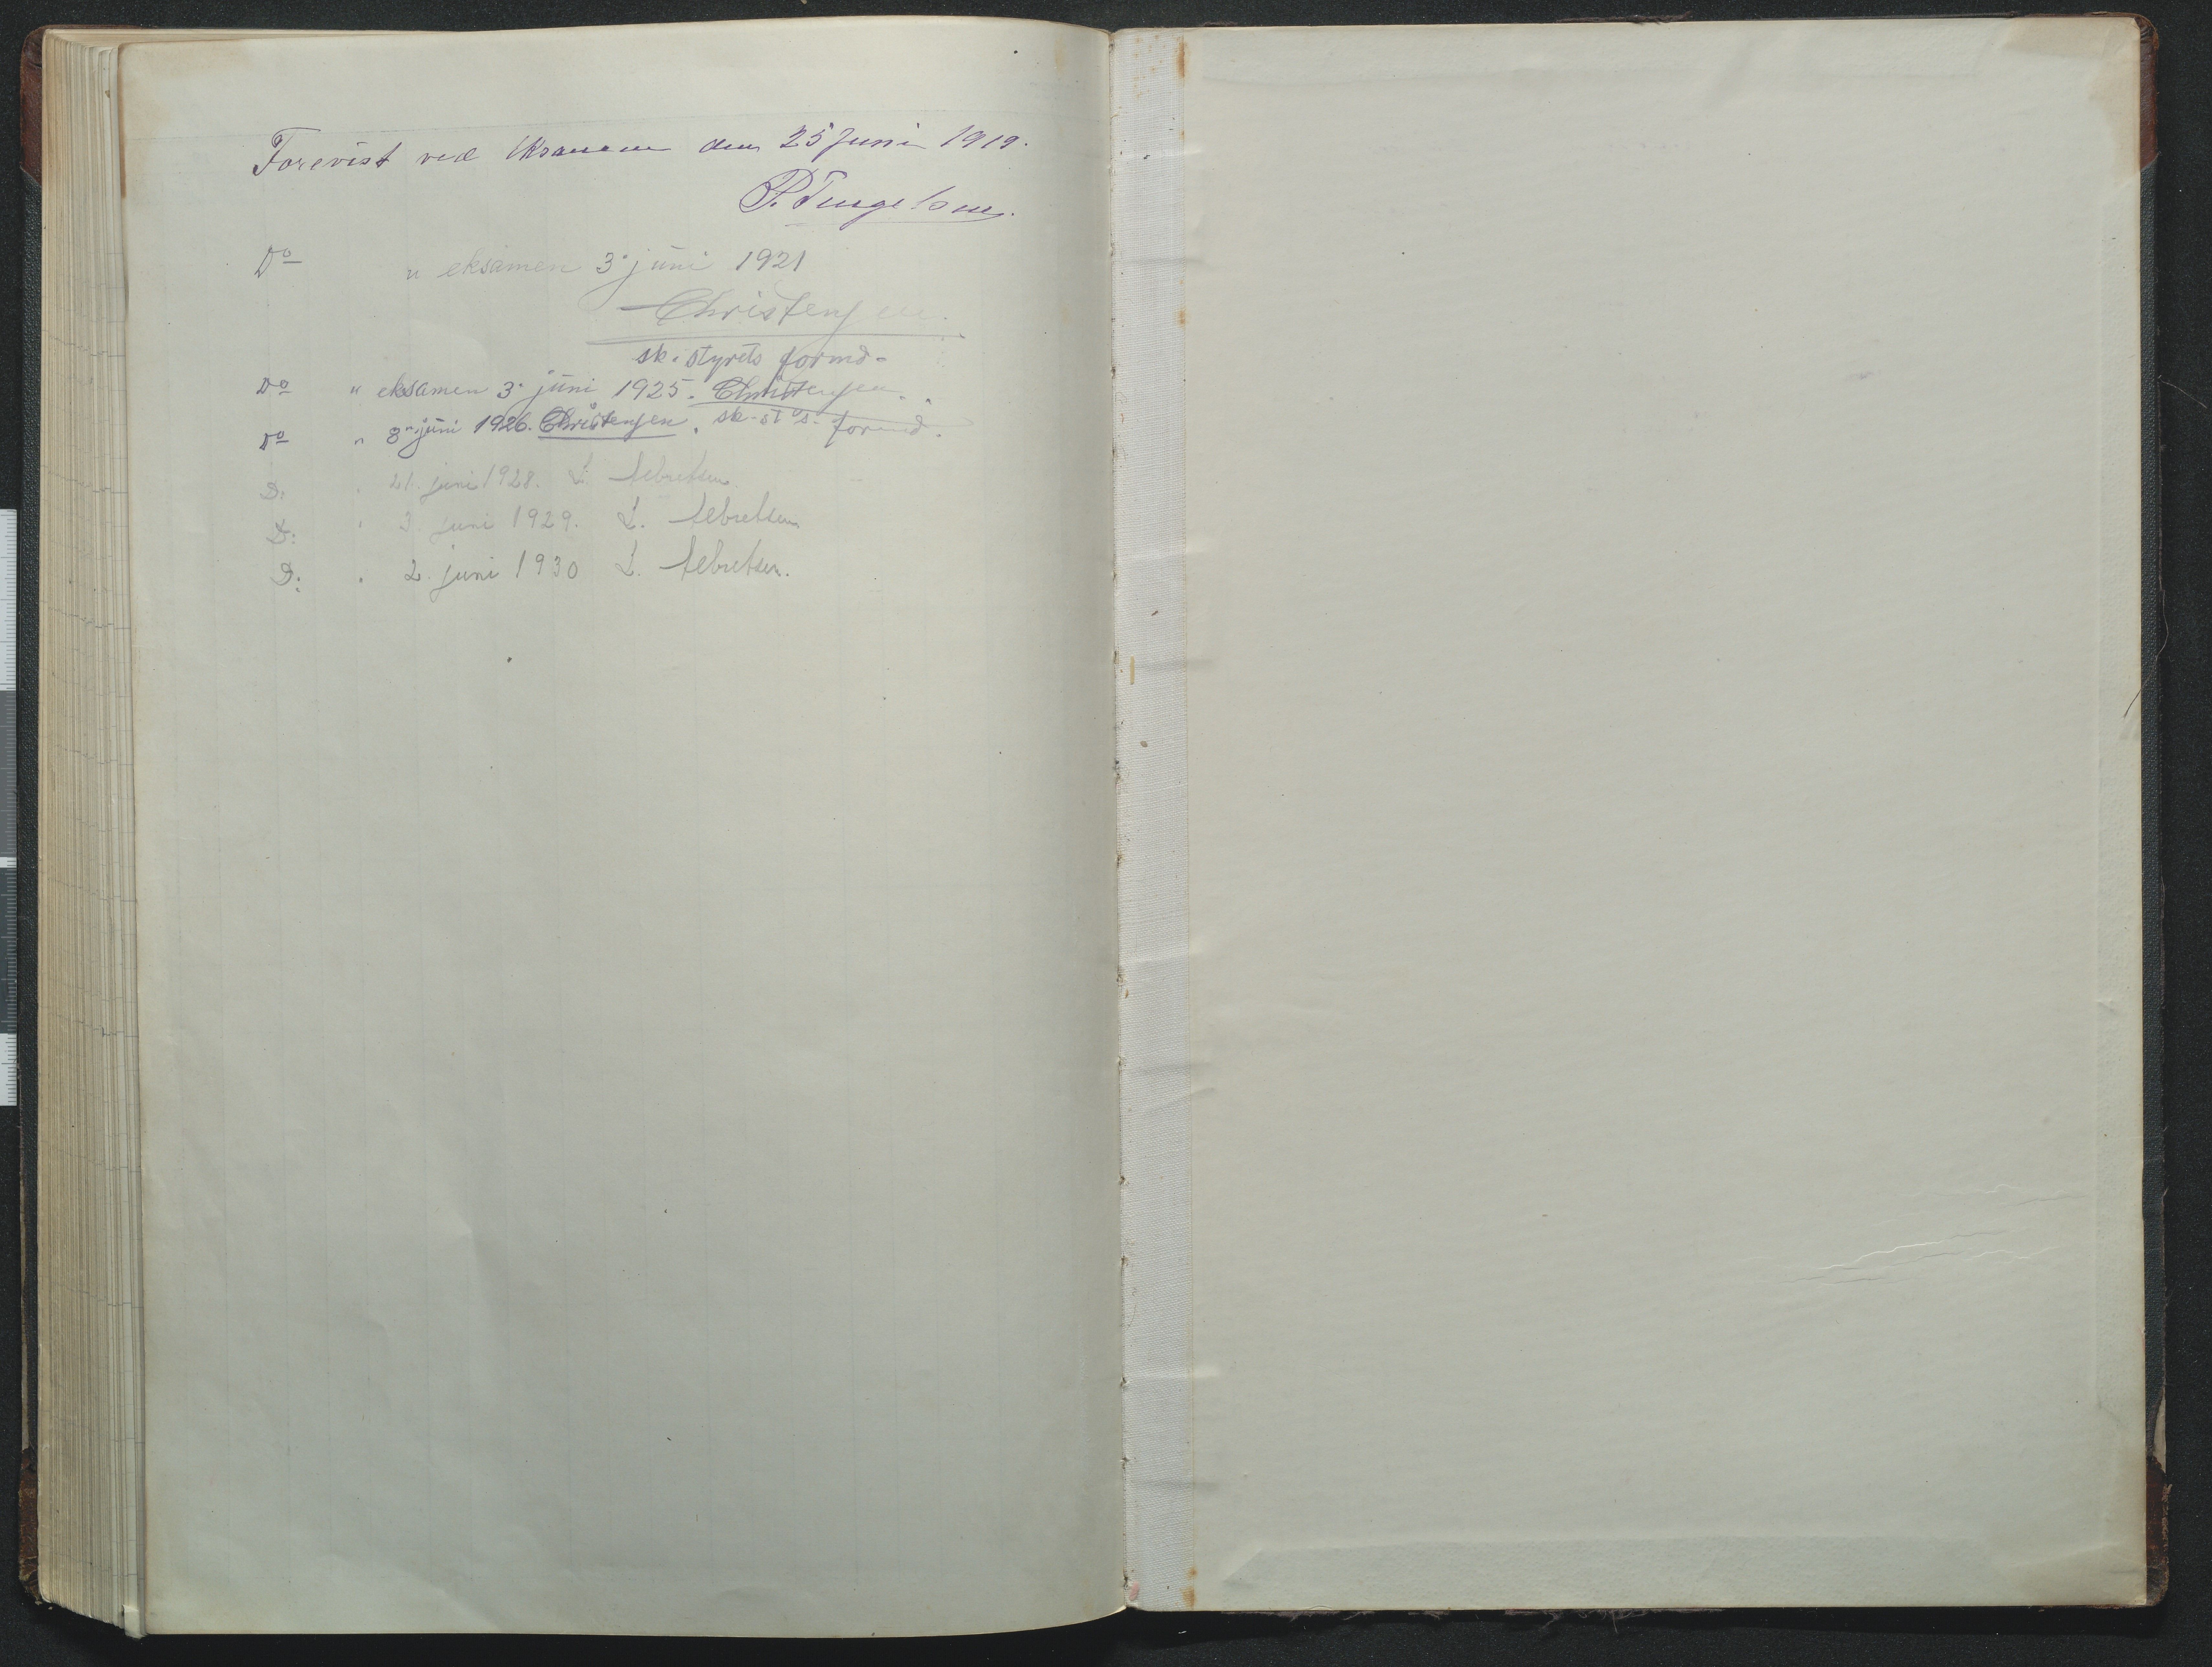 Forevist ved Eksamen den 25 Juni 1919.
Do " eksamen 3. juni 1921
Christensen.
sk. styrets formd.
Do " eksamen 3. juni 1925. Christensen.
Do " 8. juni 1926. Christensen. sk-st's. formd.
D: " 21. juni 1928. L. Albretsen
D: " 3. juni 1929. L. Albretsen
D: " 2. juni 1930 L. Albretsen.